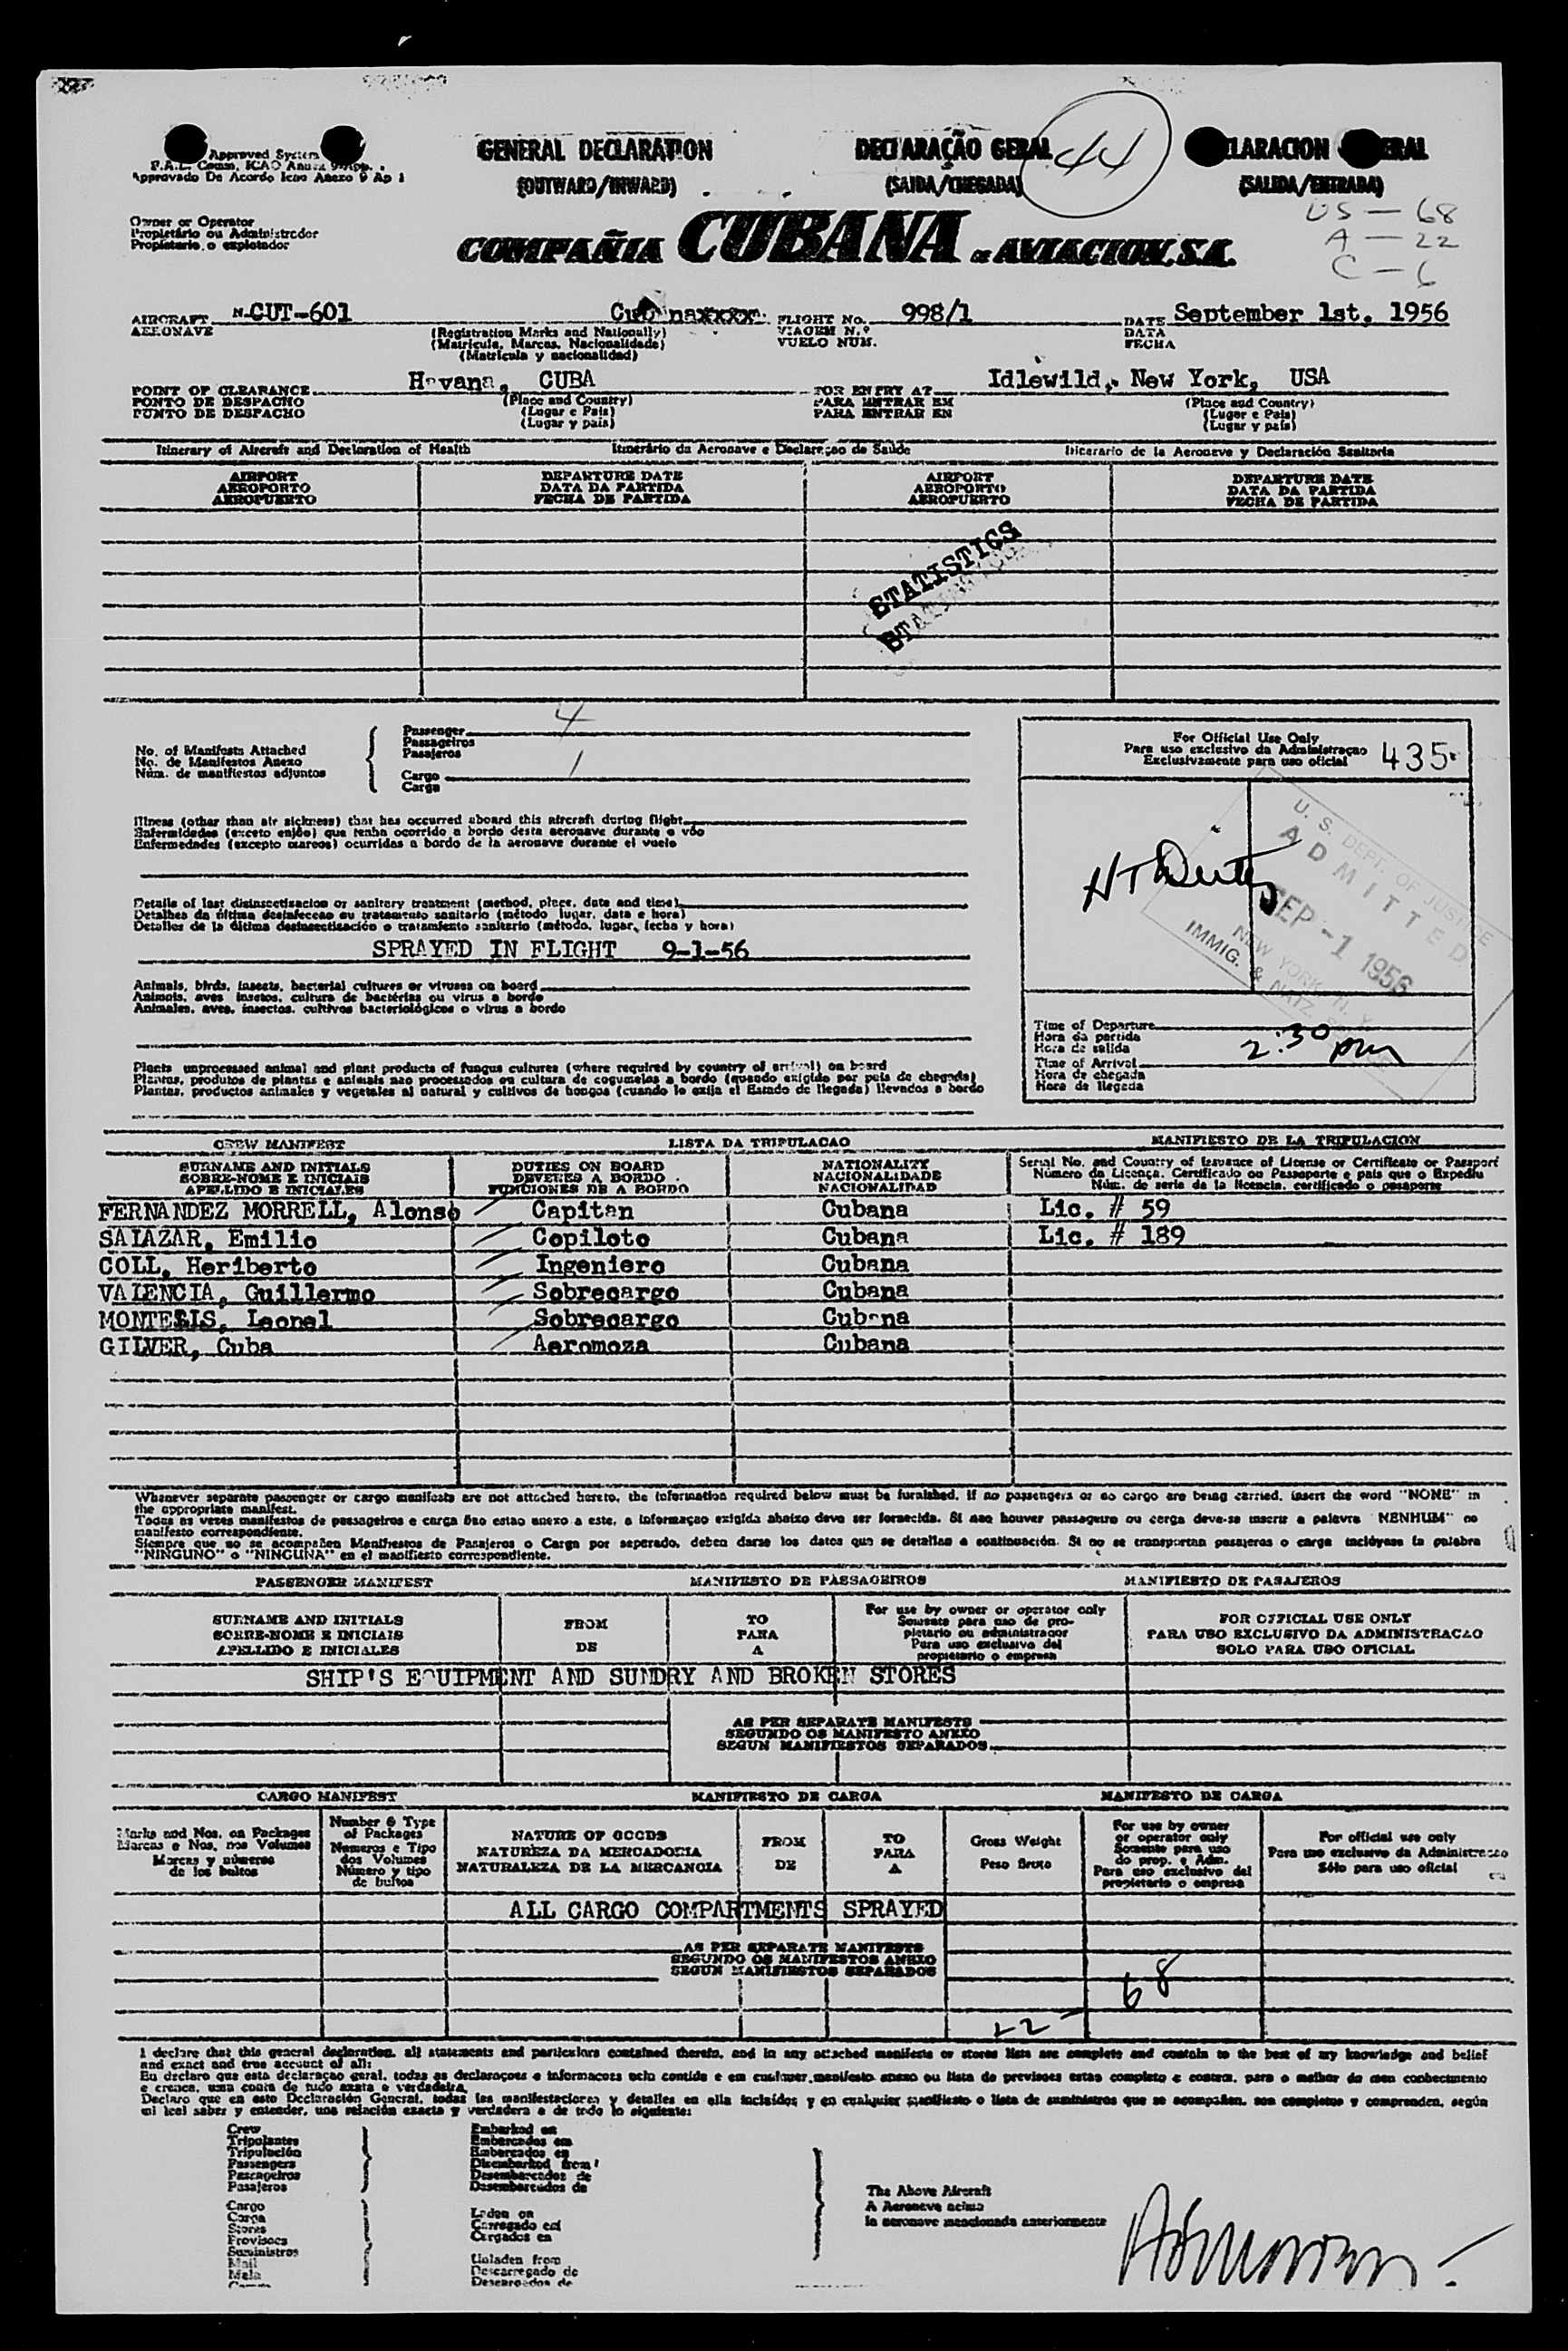 Approved System
F.A.L. Comm. ICAO Annex 9 App.
Approvado De Acordo Icao Anexo 9 Ap 1
GENERAL DECLARATION
(OUTWARD/INWARD)
DECLARAÇÃO GERAL
(SAIDA/CHEGADA)
44
LARACION ERAL
(SALIDA/ENTRADA)
US - 68
A - 22
C - 6
Owner or Operator
Propietário ou Administrador
Propietario o explotador
COMPAÑIA CUBANA DE AVIACION, S.A.
AIRCRAFT N-CUT-601 Cubanaxxxx FLIGHT No. 998/1 DATE September 1st, 1956
AERONAVE (Registration Marks and Nationally) VIAGEM N.º DATA
(Matricula, Marcas, Nacionalidade) VUELO NUM. FECHA
(Matricula y nacionalidad)
POINT OF CLEARANCE Havana, CUBA FOR ENTRY AT Idlewild, New York, USA
PONTO DE DESPACHO (Place and Country) PARA ENTRAR EM (Place and Country)
PUNTO DE DESPACHO (Lugar e Pais) PARA ENTRAR EN (Lugar e Pais)
(Lugar y pais) (Lugar y pais)
Itinerary of Aircraft and Declaration of Health Itinerário da Aeronave e Declaraçao de Saúde Itinerario de la Aeronave y Declaración Sanitaria
AIRPORT DEPARTURE DATE AIRPORT DEPARTURE DATE
AEROPORTO DATA DA PARTIDA AEROPORTO DATA DA PARTIDA
AEROPUERTO FECHA DE PARTIDA AEROPUERTO FECHA DE PARTIDA
STATISTICS
No. of Manifests Attached
No. de Manifestos Anexo
Núm. de manifiestos adjuntos
Passenger 4
Passageiros
Pasajeros
Cargo 1
Carga
For Official Use Only
Para uso exclusivo da Administraçao
Exclusivamente para uso oficial
435
U. S. DEPT. OF JUSTICE
ADMITTED
SEP -1 1956
NEW YORK, N. Y.
IMMIG. & NATZ.
Illness (other than air sickness) that has occurred aboard this aircraft during flight
Enfermidades (exceto enjôo) que tenha ocorrido a bordo desta aeronave durante o vôo
Enfermedades (excepto mareos) ocurridas a bordo de la aeronave durante el vuelo
Details of last disinsectisacion or sanitary treatment (method, place, date and time)
Detalhes da última desinfeccao ou tratamento sanitario (método lugar, data e hora)
Detalles de la última desinsectisación o tratamiento sanitario (método, lugar, fecha y hora)
SPRAYED IN FLIGHT 9-1-56
Animals, birds, insects, bacterial cultures or viruses on board
Animais, aves insetos, cultura de bactérias ou virus a bordo
Animales, aves, insectos, cultivos bacteriológicos o virus a bordo
Time of Departure
Hora da partida
Hora de salida
2:30 pm
Time of Arrival
Hora de chegada
Hora de llegada
Plants unprocessed animal and plant products of fungus cultures (where required by country of arrival) on board
Plantas, produtos de plantas e animais nao processados ou cultura de cogumelos a bordo (quando exigido por pais de chegada)
Plantas, productos animales y vegetales al natural y cultivos de hongos (cuando lo exija el Estado de llegada) llevados a bordo
CREW MANIFEST LISTA DA TRIPULACAO MANIFIESTO DE LA TRIPULACION
SURNAME AND INITIALS DUTIES ON BOARD NATIONALITY Serial No. and Country of Issuance of License or Certificate or Passport
SOBRE-NOME E INICIAIS DEVERES A BORDO NACIONALIDADE Número da Licença, Certificado ou Passaporte e pais que o Expediu
APELLIDO E INICIALES FUNCIONES DE A BORDO NACIONALIDAD Núm. de serie de la licencia, certificado o pasaporte
FERNANDEZ MORRELL, Alonso Capitan Cubana Lic. # 59
SALAZAR, Emilio Copiloto Cubana Lic. # 189
COLL, Heriberto Ingeniero Cubana
VALENCIA, Guillermo Sobrecargo Cubana
Leonel Sobrecargo Cubana
Cuba Aeromoza Cubana
Whenever separate passenger or cargo manifests are not attached hereto, the information required below must be furnished. If no passengers or no cargo are being carried, insert the word "NONE" in
the appropriate manifest.
Todas as vezes manifestos de passageiros e carga nao estao anexo a este, a informaçao exigida abaixo deve ser fornecida. Si nao houver passageiro ou carga deve-se inserir a palavra "NENHUM" no
manifesto correspondiente.
Siempre que no se acompañen Manifiestos de Pasajeros o Carga por separado, deben darse los datos que se detallan a continuación. Si no se transportan pasajeros o carga inclúyase la palabra
"NINGUNO" o "NINGUNA" en el manifiesto correspondiente.
PASSENGER MANIFEST MANIFESTO DE PASSAGEIROS MANIFIESTO DE PASAJEROS
SURNAME AND INITIALS FROM TO For use by owner or operator only FOR OFFICIAL USE ONLY
SOBRE-NOME E INICIAIS PARA Somente para uso de propietario ou administrador PARA USO EXCLUSIVO DA ADMINISTRACAO
APELLIDO E INICIALES DE A Para uso exclusivo del propietario o empresa SOLO PARA USO OFICIAL
SHIP'S EQUIPMENT AND SUNDRY AND BROKEN STORES
AS PER SEPARATE MANIFESTS
SEGUNDO OS MANIFESTO ANEXO
SEGUN MANIFIESTOS SEPARADOS
CARGO MANIFEST MANIFIESTO DE CARGA MANIFESTO DE CARGA
Marks and Nos. on Packages
Marcas e Nos. nos Volumes
Marcas y números
de los bultos
Number & Type
of Packages
Numeros e Tipo
dos Volumes
Número y tipo
de bultos
NATURE OF GOODS
NATUREZA DA MERCADORIA
NATURALEZA DE LA MERCANCIA
FROM
DE
TO
PARA
A
Gross Weight
Peso Bruto
For use by owner
or operator only
Somente para uso
do prop. e Adm.
Para uso exclusivo del
propietario o empresa
For official use only
Para uso exclusivo da Administracao
Sólo para uso oficial
ALL CARGO COMPARTMENTS SPRAYED
AS PER SEPARATE MANIFESTS
SEGUNDO OS MANIFESTOS ANEXO
SEGUN MANIFIESTOS SEPARADOS
68
22 -
I declare that this general declaration, all statements and particulars contained therein, and in any attached manifests or stores lists are complete and contain to the best of my knowledge and belief
and exact and true account of all:
Eu declaro que esta declaraçao geral, todas as declaraçoes e informacoes nela contida e em qualquer manifesto anexo ou lista de previsoes estao completo e contem, para o melhor do meu conhecimento
e crenca, uma conta de tudo exata e verdadeira.
Declaro que en esta Declaración General, todas las manifestaciones y detalles en ella incluídos y en cualquier manifiesto o lista de suministros que se acompañen, son completos y comprenden, según
mi leal saber y entender, una relación exacta y verdadera e de todo lo siguiente:
Crew
Tripolantes
Tripulación
Passengers
Passageiros
Pasajeros
Embarked on
Embarcados em
Embarcados en
Disembarked from
Desembarcados de
Desembarcados de
Cargo
Carga
Stores
Provisoes
Suministros
Mail
Mala
Laden on
Carregado em
Cargados en
Unladen from
Descarregado de
The Above Aircraft
A Aeroneve acima
la aeronave mencionada anteriormente